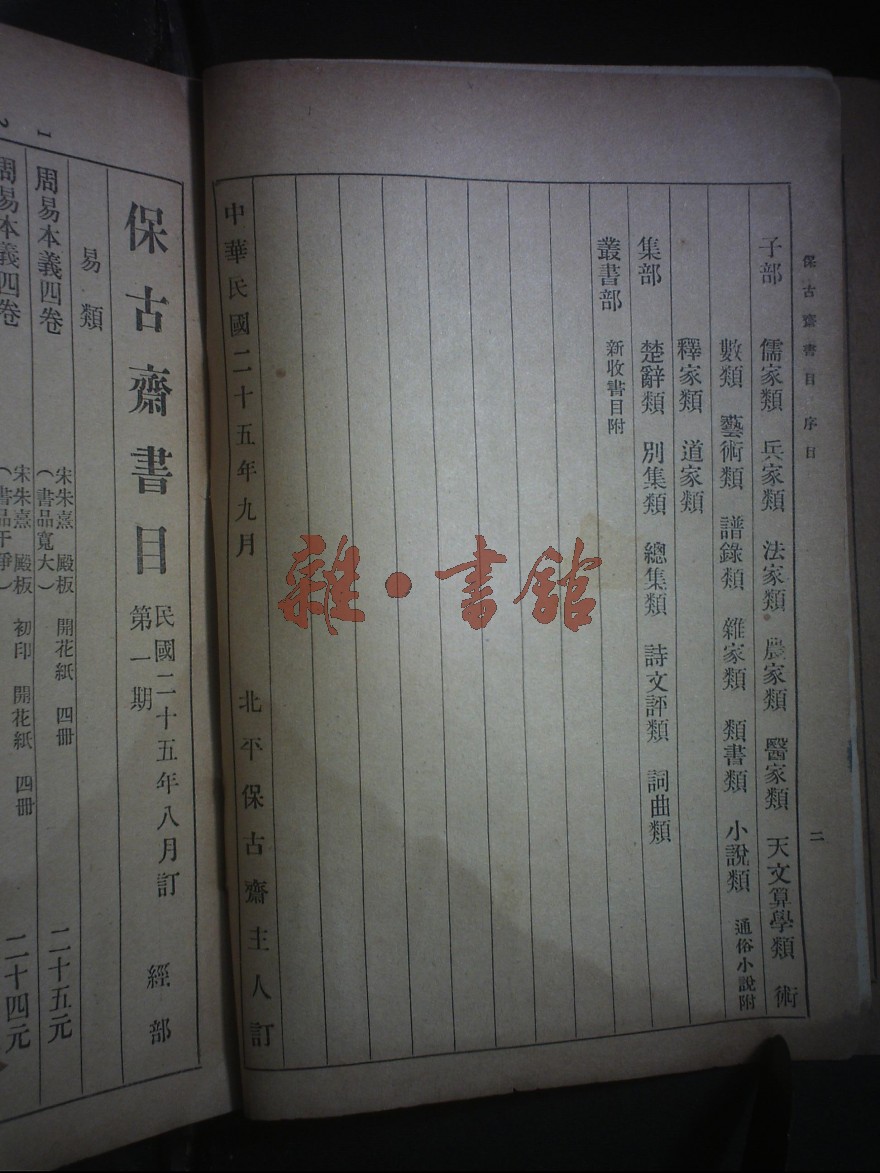 保古齋書目 序目 二
子部 儒家類 兵家類 法家類 農家類 醫家類 天文算學類 術
數類 藝術類 譜錄類 雜家類 類書類 小說類 通俗小說附
釋家類 道家類
集部 楚辭類 別集類 總集類 詩文評類 詞曲類
叢書部 新收書目附
中華民國二十五年九月 北平保古齋主人訂
保古齋書目 民國二十五年八月訂 第一期 經部
易類
1 周易本義四卷 宋朱熹 殿板 開花紙 四冊 二十五元
(書品寬大)
2 周易本義四卷 宋朱熹 殿板 初印 開花紙 四冊 二十四元
(書品干淨)
雜·書館